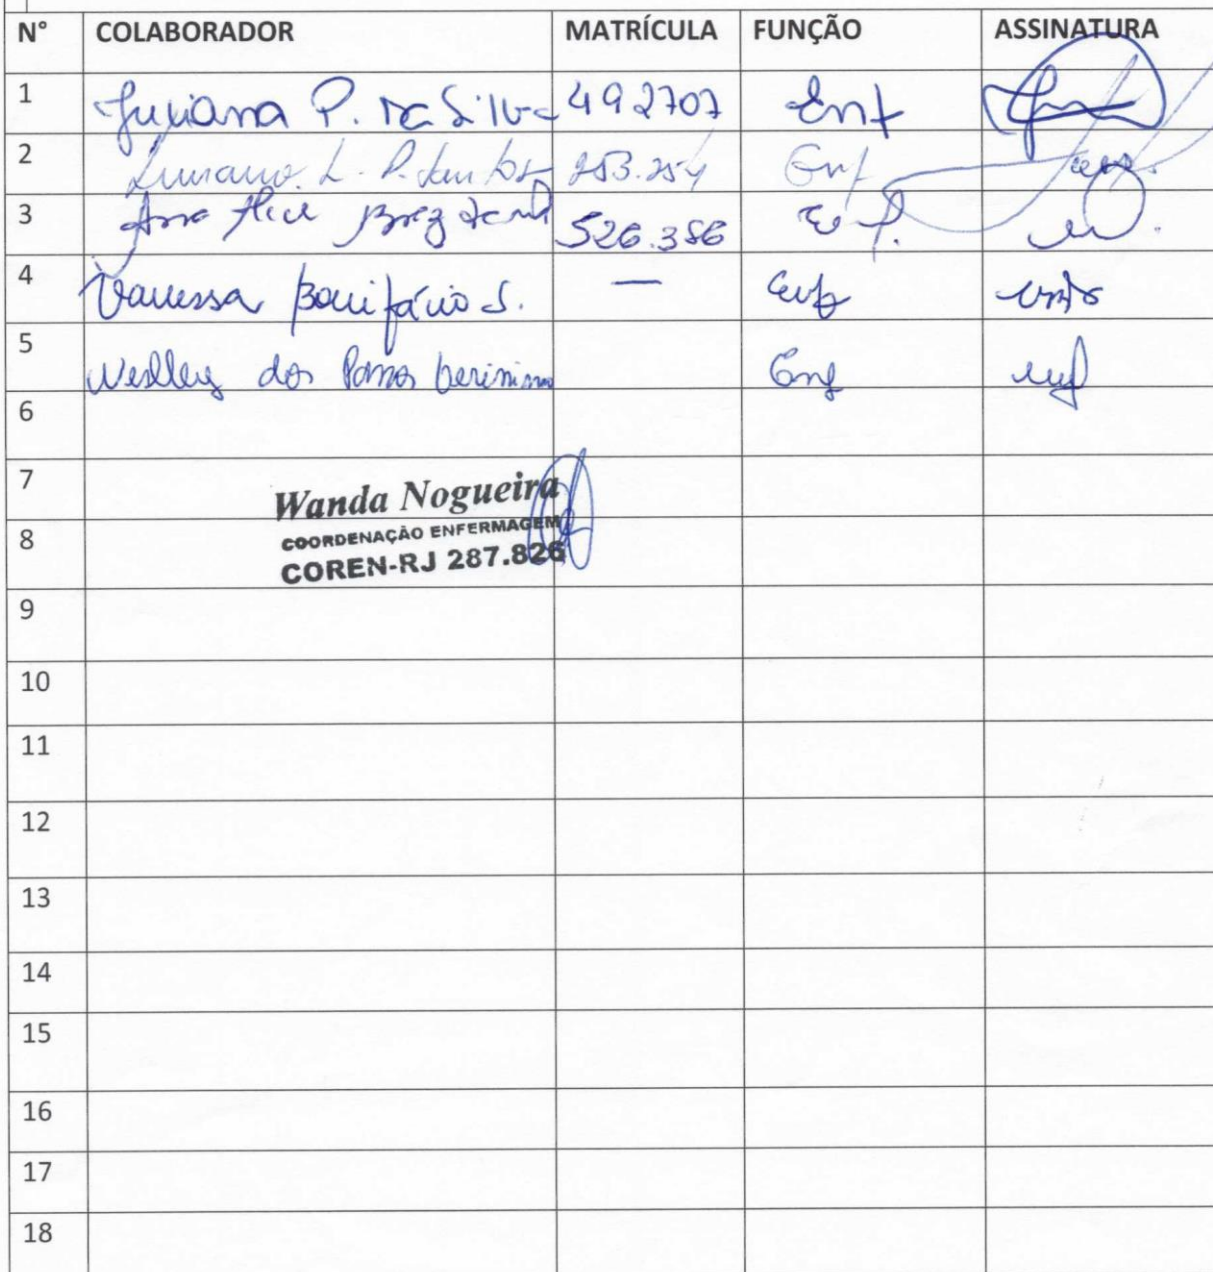 N° COLABORADOR MATRÍCULA FUNÇÃO ASSINATURA
1 Juliana P. da Silva 492707 Enf
2 L. P. Santos 253.254 Enf
3 Ana Alice Braz 526.386 Enf.
4 Vanessa Bonifácio S. — Enf
5 Weslley dos Passos Enf
6
7
Wanda Nogueira
8
COORDENAÇÃO ENFERMAGEM
COREN-RJ 287.826
9
10
11
12
13
14
15
16
17
18